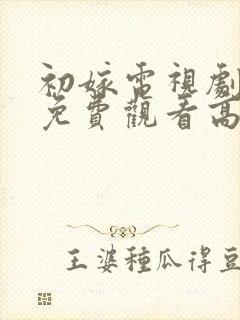 初嫁電視劇
免費觀看高
王婆種瓜得豆